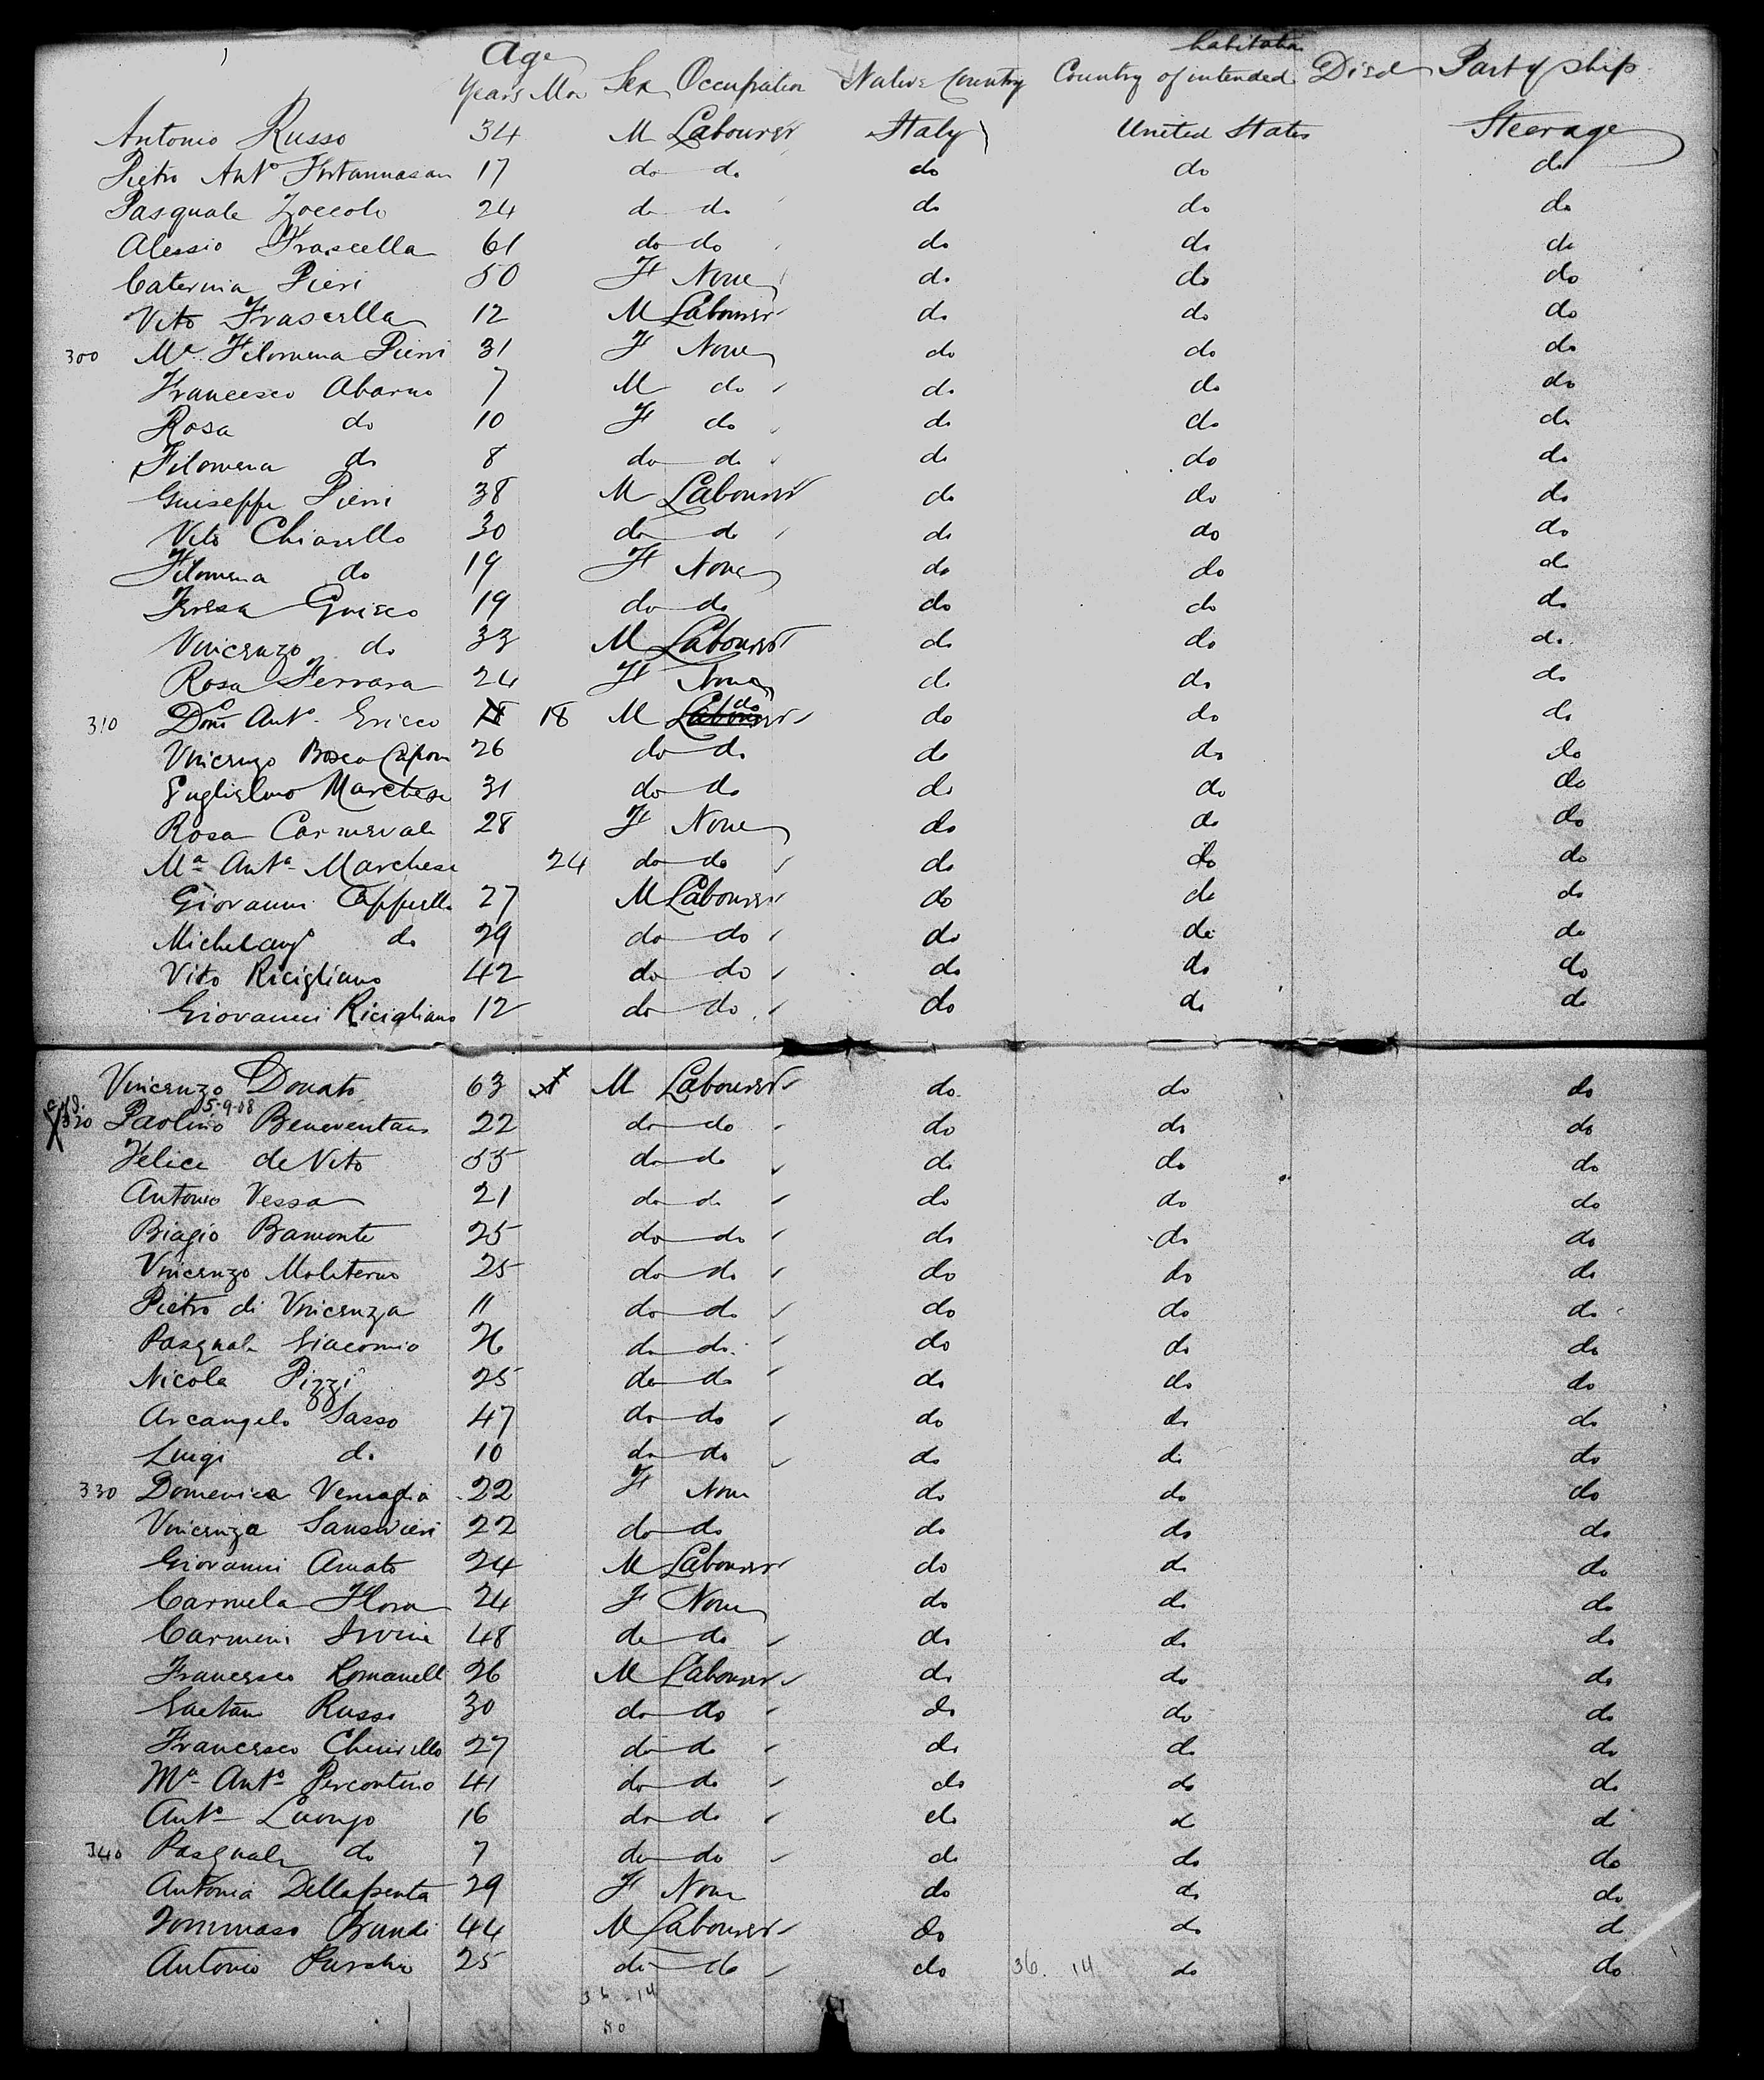 Age habitation
Years Mon Sex Occupation Native Country Country of intended Died Part of ship
Antonio Russo 34 M Labourer Italy United States Steerage
Pietro Ant.o 17 do do do do do
Pasquale Zoccolo 24 do do do do do
Alessio Frascella 61 do do do do do
Caterina Pieri 50 F None do do do
Vito Frascella 12 M Labourer do do do
300 Ma. Filomena Pierri 31 F None do do do
Francesco Abarno 7 M do do do do
Rosa do 10 F do do do do
Filomena do 8 do do do do do
Guiseppe Pierri 38 M Labourer do do do
Vito Chiarello 30 do do do do do
Filomena do 19 F None do do do
Teresa Grieco 19 do do do do do
Vincenzo do 33 M Labourer do do do
Rosa Ferrara 24 F None do do do
310 Dom.o Ant.o Grieco 18 M do do do do
Vincenzo Bosco Capon 26 do do do do do
Guglielmo Marchese 31 do do do do do
Rosa Carnevale 28 F None do do do
Ma Anta Marchese 24 do do do do do
Giovanni Cappiello 27 M Labourer do do do
Michelango do 29 do do do do do
Vito Ricigliano 42 do do do do do
Giovanni Ricigliano 12 do do do do do
Vincenzo Donato 63 M Labourer do do do
5-9-08
320 Paolino Beneventano 22 do do do do do
Felice de Vito 55 do do do do do
Antonio Vessa 21 do do do do do
Biagio Bamonte 25 do do do do do
Vincenzo Moliterno 25 do do do do do
Pietro di Vincenza 11 do do do do do
Pasquale Giacomio 26 do do do do do
Nicola Pizzi 25 do do do do do
Arcangelo Sasso 47 do do do do do
Luigi do 10 do do do do do
330 Domenica 22 F None do do do
Vincenza 22 do do do do do
Giovanni Amato 24 M Labourer do do do
Carmela Flora 24 F None do do do
Carmini 48 do do do do do
Francesco Romanelli 26 M Labourer do do do
Gaetano Russo 30 do do do do do
Francesco 27 do do do do do
Ma Anto Percontino 41 do do do do do
Anto Luongo 16 do do do do do
340 Pasquale do 7 do do do do do
Antonia Dellapenta 29 F None do do do
Tommaso Brandi 44 M Labourer do do do
Antonio 25 do do do 36. 14 do do
36 - 14
50